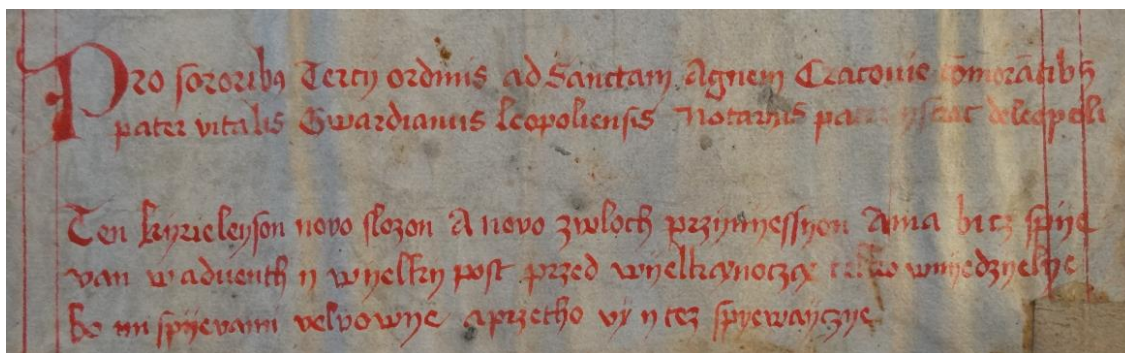 Pro sororibꝰ Tercij ordinis ad Sanctam Agnem Cracovie com̄orātibꝰ
pater vitalis Gwardianus leopoliensis Notarijs de leopoli
Ten kyrieleyson novo slozon A novo zwloch przynyessyon Ama bicz spije
van w adventh y wyelky post przed wyelkąnoczą tylko wnyedzyelye
bo mi spijevami velvowye aprzetho vy y tez spyewayczye